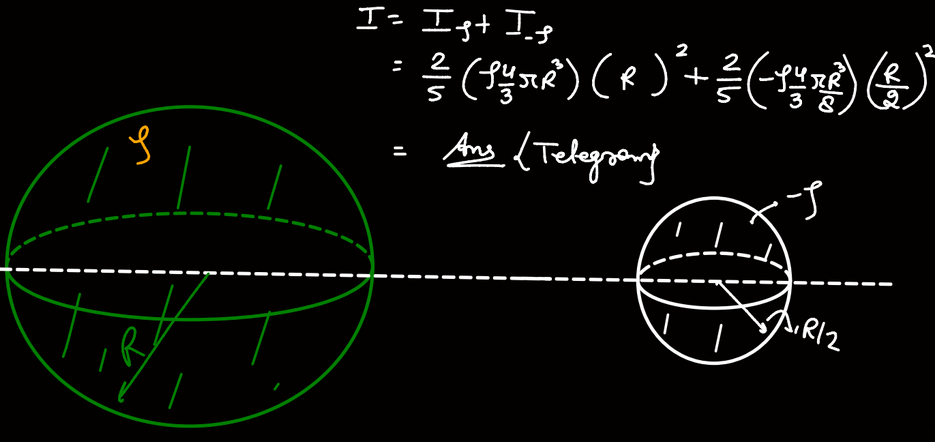 I = I_ρ + I_-ρ
= 2/5 (ρ 4/3 πR³) (R)² + 2/5 (-ρ 4/3 π R³/8) (R/2)²
= Ans {Telegram}
ρ
-ρ
R
R/2